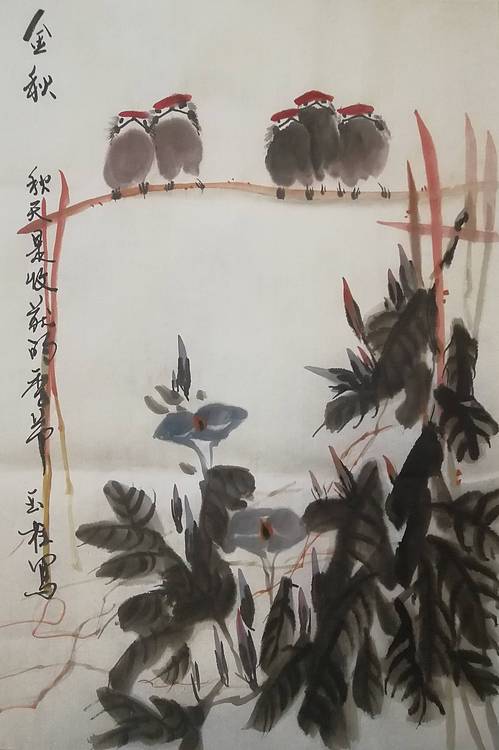 金秋
秋天是收获的季节 玉柱写